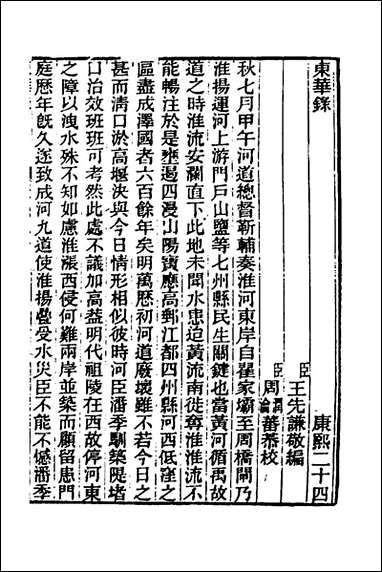 東華錄 康熙二十四
臣王先謙敬編
臣周潤蕃周瀹蕃恭校
秋七月甲午河道總督靳輔奏淮河東岸自翟家壩至周橋閘乃
淮揚運河上游門戶山鹽等七州縣民生關鍵也當黃河循禹故
道之時淮流安瀾直下此地未聞水患迨黃流南徙奪淮淮流不
能暢注於是壅遏四漫山陽寶應高郵江都四州縣河西低窪之
區盡成澤國者六百餘年矣明萬歷初河道廢壞雖不若今日之
甚而淸口淤高堰決與今日情形相似彼時河臣潘季馴築隄堵
口治效班班可考然此處不議加高益明代祖陵在西故停河東
之障以洩水殊不知如慮淮漲西侵何難兩岸並築而顧留患門
庭歷年旣久逐致成河九道使淮揚疊受水災臣不能不憾潘季